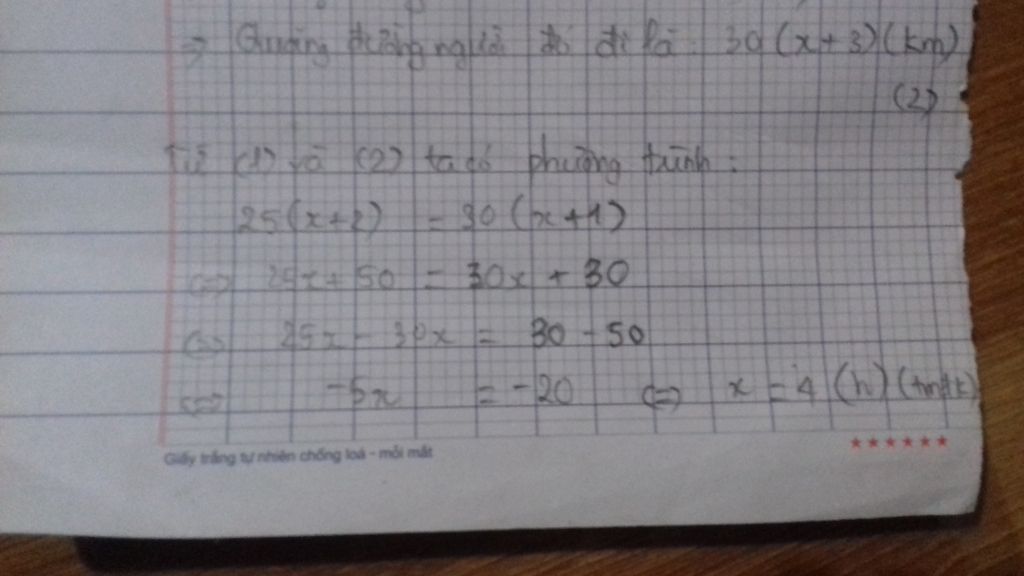 => Quãng đường người đó đi là: 30(x+3)(km)
(2)
Từ (1) và (2) ta có phương trình:
25(x+2) = 30(x+1)
<=> 25x+50 = 30x+30
<=> 25x-30x = 30-50
<=> -5x = -20 <=> x = 4 (h) (tmđk)
Giấy trắng tự nhiên chống loá - mỏi mắt
★★★★★★